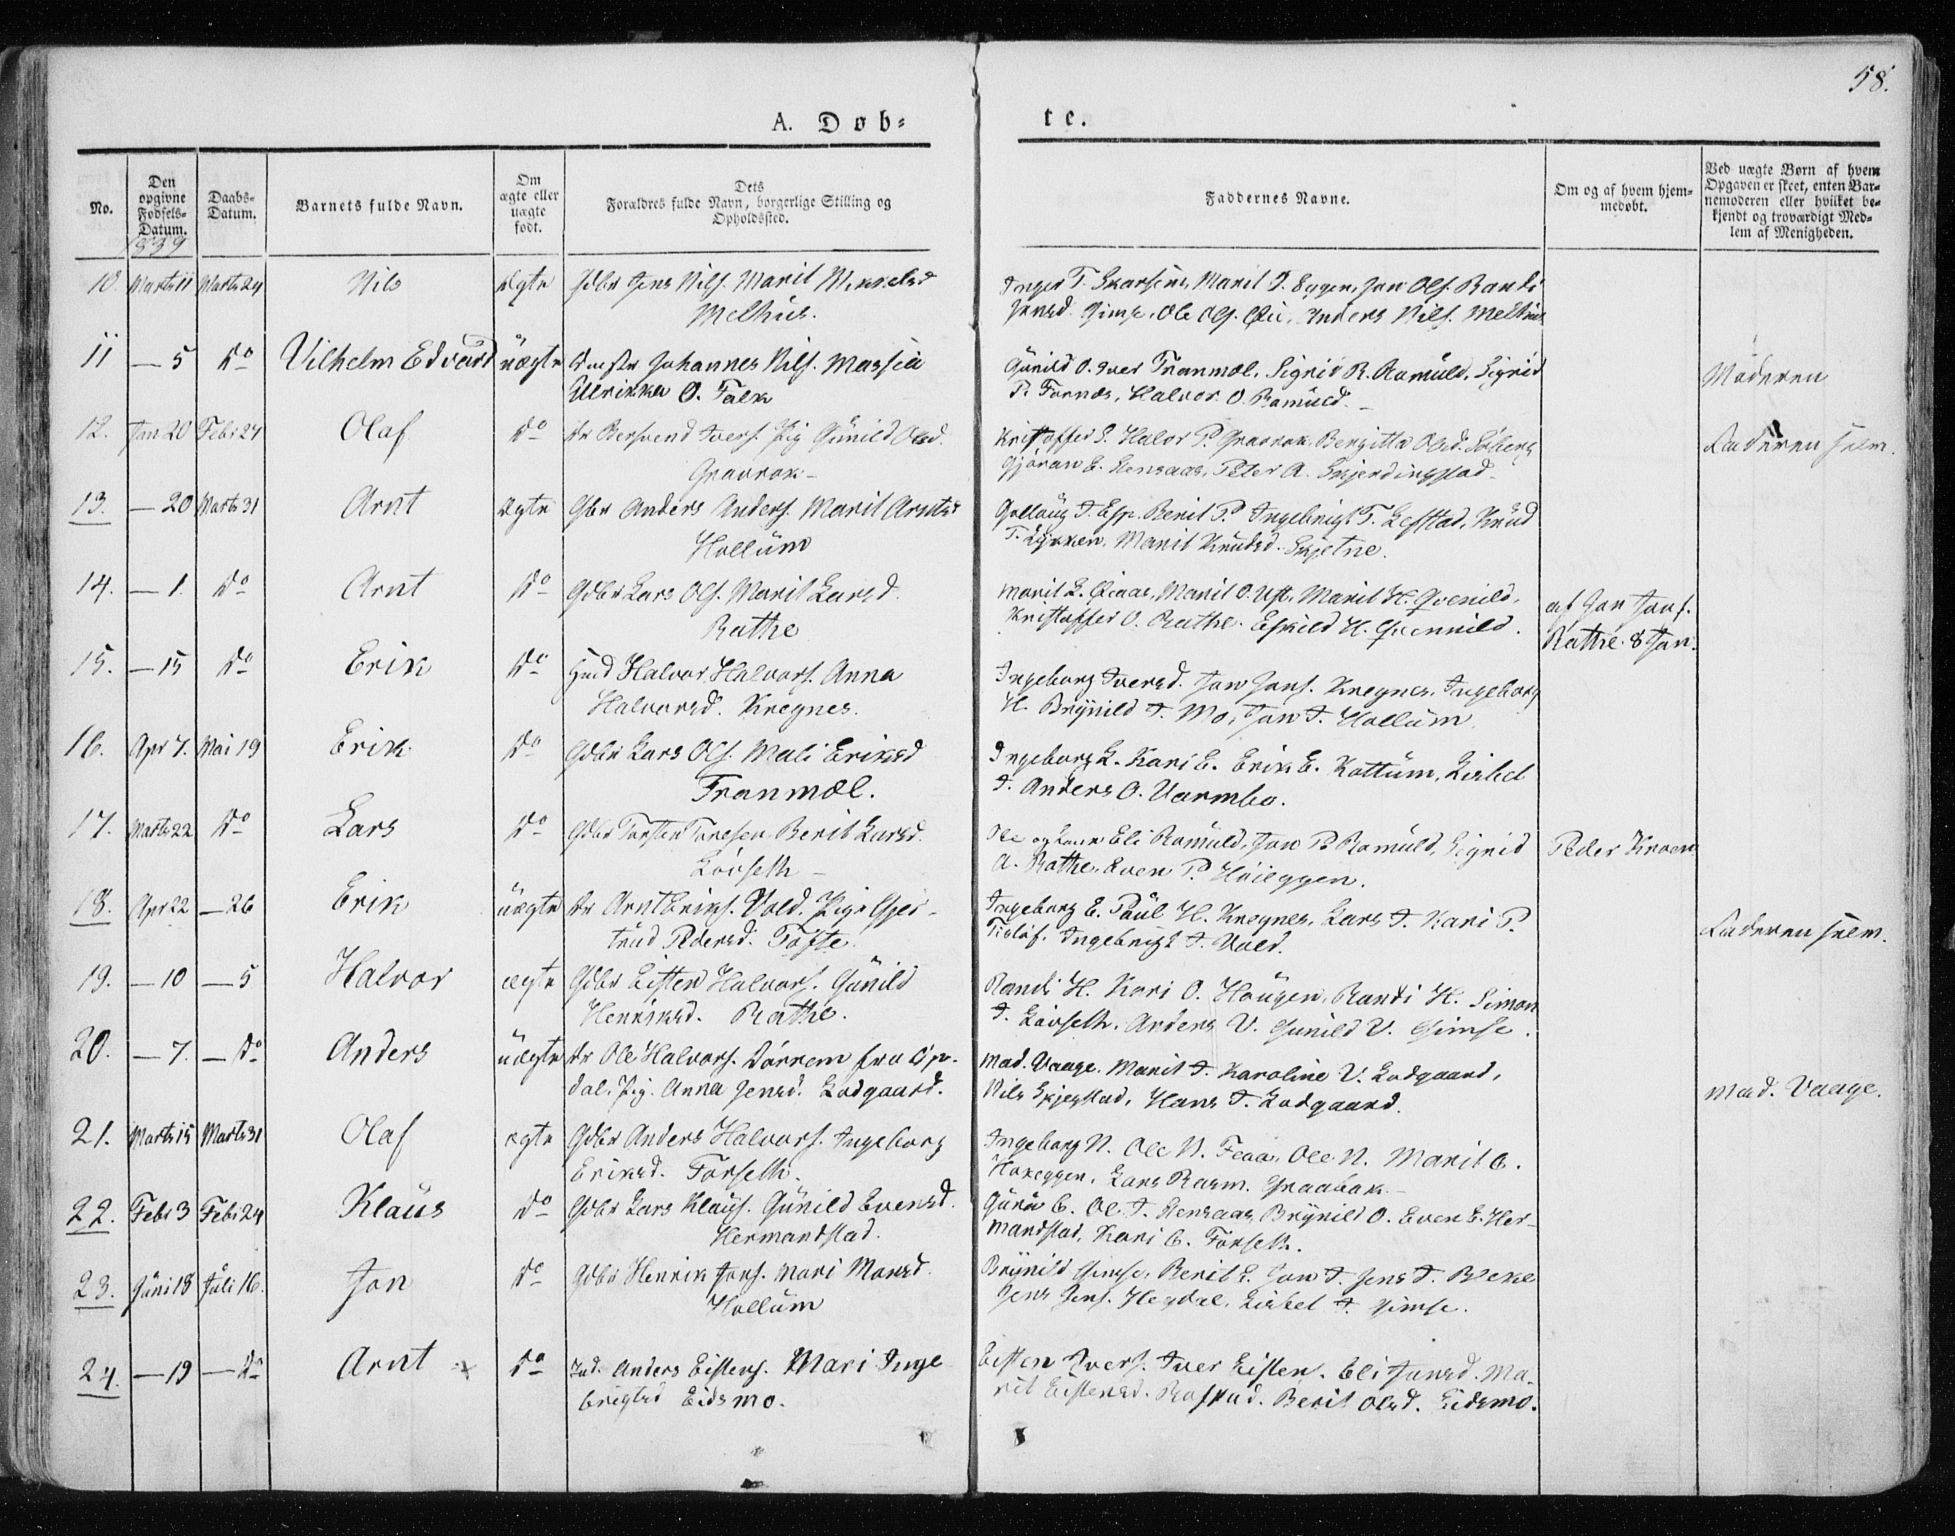 58.
A. Døb=
te.
No.
Den opgivne Fødsels-Datum.
Daabs-Datum.
Barnets fulde Navn.
Om ægte eller uægte født.
Dets Forældres fulde Navn, borgerlige Stilling og Opholdssted.
Faddernes Navne.
Om og af hvem hjemmedøbt.
Ved uægte Børn af hvem Opgaven er skeet, enten Barnemoderen eller hvilket bekjendt og troværdigt Medlem af Menigheden.
1839
10. Marts 11 Marts 24 Nils ægte Gdbr Jens Nils. Marit Mikkelsd Melhus.
Marit J. Eggen, Jon Ols. Randi
Jonsd. Gimse, Ole Ols. Øie, Anders Nils. Melhus
11 — 5 Do Vilhelm Edvard uægte Johannes Nils.
Ulrikka O. Falk
Gunild O. Iver Tranmæl, Sigrid R. Ramuld, Sigrid
P. Fornæs, Halvor O. Ramuld. —
Moderen
12. Jan 20 Feb: 24 Olaf Do Dr Bersvend Ivers. Pig Gunild Olsd.
Gravrok —
Kristoffer S. Halvor P. Gravrok. Bergitta Olsd. Søberg
Gjøran E. Stensaas, Peter A. Skjerdingstad.
Faderen selv.
13. — 20 Marts 31 Arnt ægte Gbr Anders Anders. Marit Arntsd
Hollum
J. Esp. Berit P. Ingebrigt T. Lefstad, Knud
T. Løkken. Marit Knudsd. Skjetne.
14. — 1. Do Arnt Do Gdbr Lars Ols. Marit Larsd.
Rathe
Marit L. Øiaas, Marit O. Ust, Marit H. Qvenild,
Kristoffer O. Rathe. Eskild H. Qvennild.
af Jon Jons.
Rathe. 8 Jan.
15. — 15 Do Erik Do Halvor Halvors. Anna
Halvorsd. Kregnes.
Ingeborg Iversd. Jon Jons. Kregnes. Ingeborg
H. Brynild J. Mo, Jon J. Hollum
16. Apr 7. Mai 19 Erik Do Gdbr Lars Ols. Mali Eriksd
Tranmæl.
Ingeborg L. Kari E. Erik E. Kattum, Lisbet
J. Anders O. Varmbo.
17. Marts 22 Do Lars Do Gdbr Torsten Toresen Berit Larsd.
Løvseth —
Ole og Eli Ramuld, Jon P Ramuld, Sigrid
A. Rathe, Even P. Høieggen.
Peder Kroen
18. Apr 22 — 26 Erik uægte Dr Arnt Eriks. Vold. Pige Gjer-
trud Pedersd. Tofte.
Ingeborg E. Paul H. Kregnes, Lars J. Kari P.
Ingebrigt J. Vold.
Faderen selv.
19. — 10 — 5 Halvor ægte Gdbr Eisten Halvors. Gunild
Henriksd. Rathe.
Randi H. Kari O. Haugen, Randi H. Simon
J. Løvseth. Anders V. Gunild V. Gimse.
20. — 7. — Do Anders uægte Dr Ole Halvors. Dørrem fra Op-
dal, Pig. Anna Jensd. Lodgaard.
Mad. Vaage. Marit J. Karoline V. Lodgaard,
Nils Skjegstad, Hans J. Lodgaard.
Mad. Vaage.
21. Marts 15 Marts 31 Olaf ægte Gdbr Anders Halvors. Ingeborg
Eriksd. Forseth.
Ingeborg N. Ole N. Ole N. Marit E.
Hoxeggen, Lars Rasm. Graabak. —
22. Feb: 3 Feb: 24 Klaus Do Gdbr Lars Klaus. Gunild Evensd.
Hermandstad.
Guru E. Ol. J. Stensaas, Brynild O. Even E. Her-
mandstad, Kari E. Forseth.
23. Juni 18 Juli 16. Jon Do Gdbr Henrik Jons. Mari Monsd.
Hollum
Brynild Gimse, Berit L. Jon J. Jens J. Bleke
Jens Jens. Hegdal, Lisbet J. Gimse.
24. — 19 — Do Arnt Do Ind. Anders Eistens. Mari Inge
brigtsd Eidsmo.
Eisten Ivers. Iver Eisten. Eli Jonsd. Ma-
rit Eistensd. Rofstad. Berit Olsd. Eidsmo.